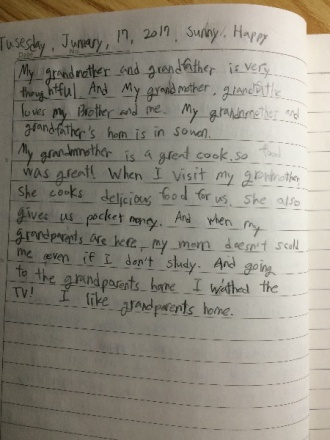 Tuseday, Junuary, 17, 2017, Sunny, Happy
My grandmother and grandfather is very
thoughtful. And My grandmother, grandfathe
loves my Brother and me. My grandmother and
grandfather's hom is in sowon.
My grandmmother is a great cook, so food
was great! When I visit my grandmother,
she cooks delicious food for us. she also
gives us pocket money. And when my
grandparents are here, my mom doesn't scoll
me even if I don't study. And going
to the grandparents home I wathed the
TV! I like grandparents home.